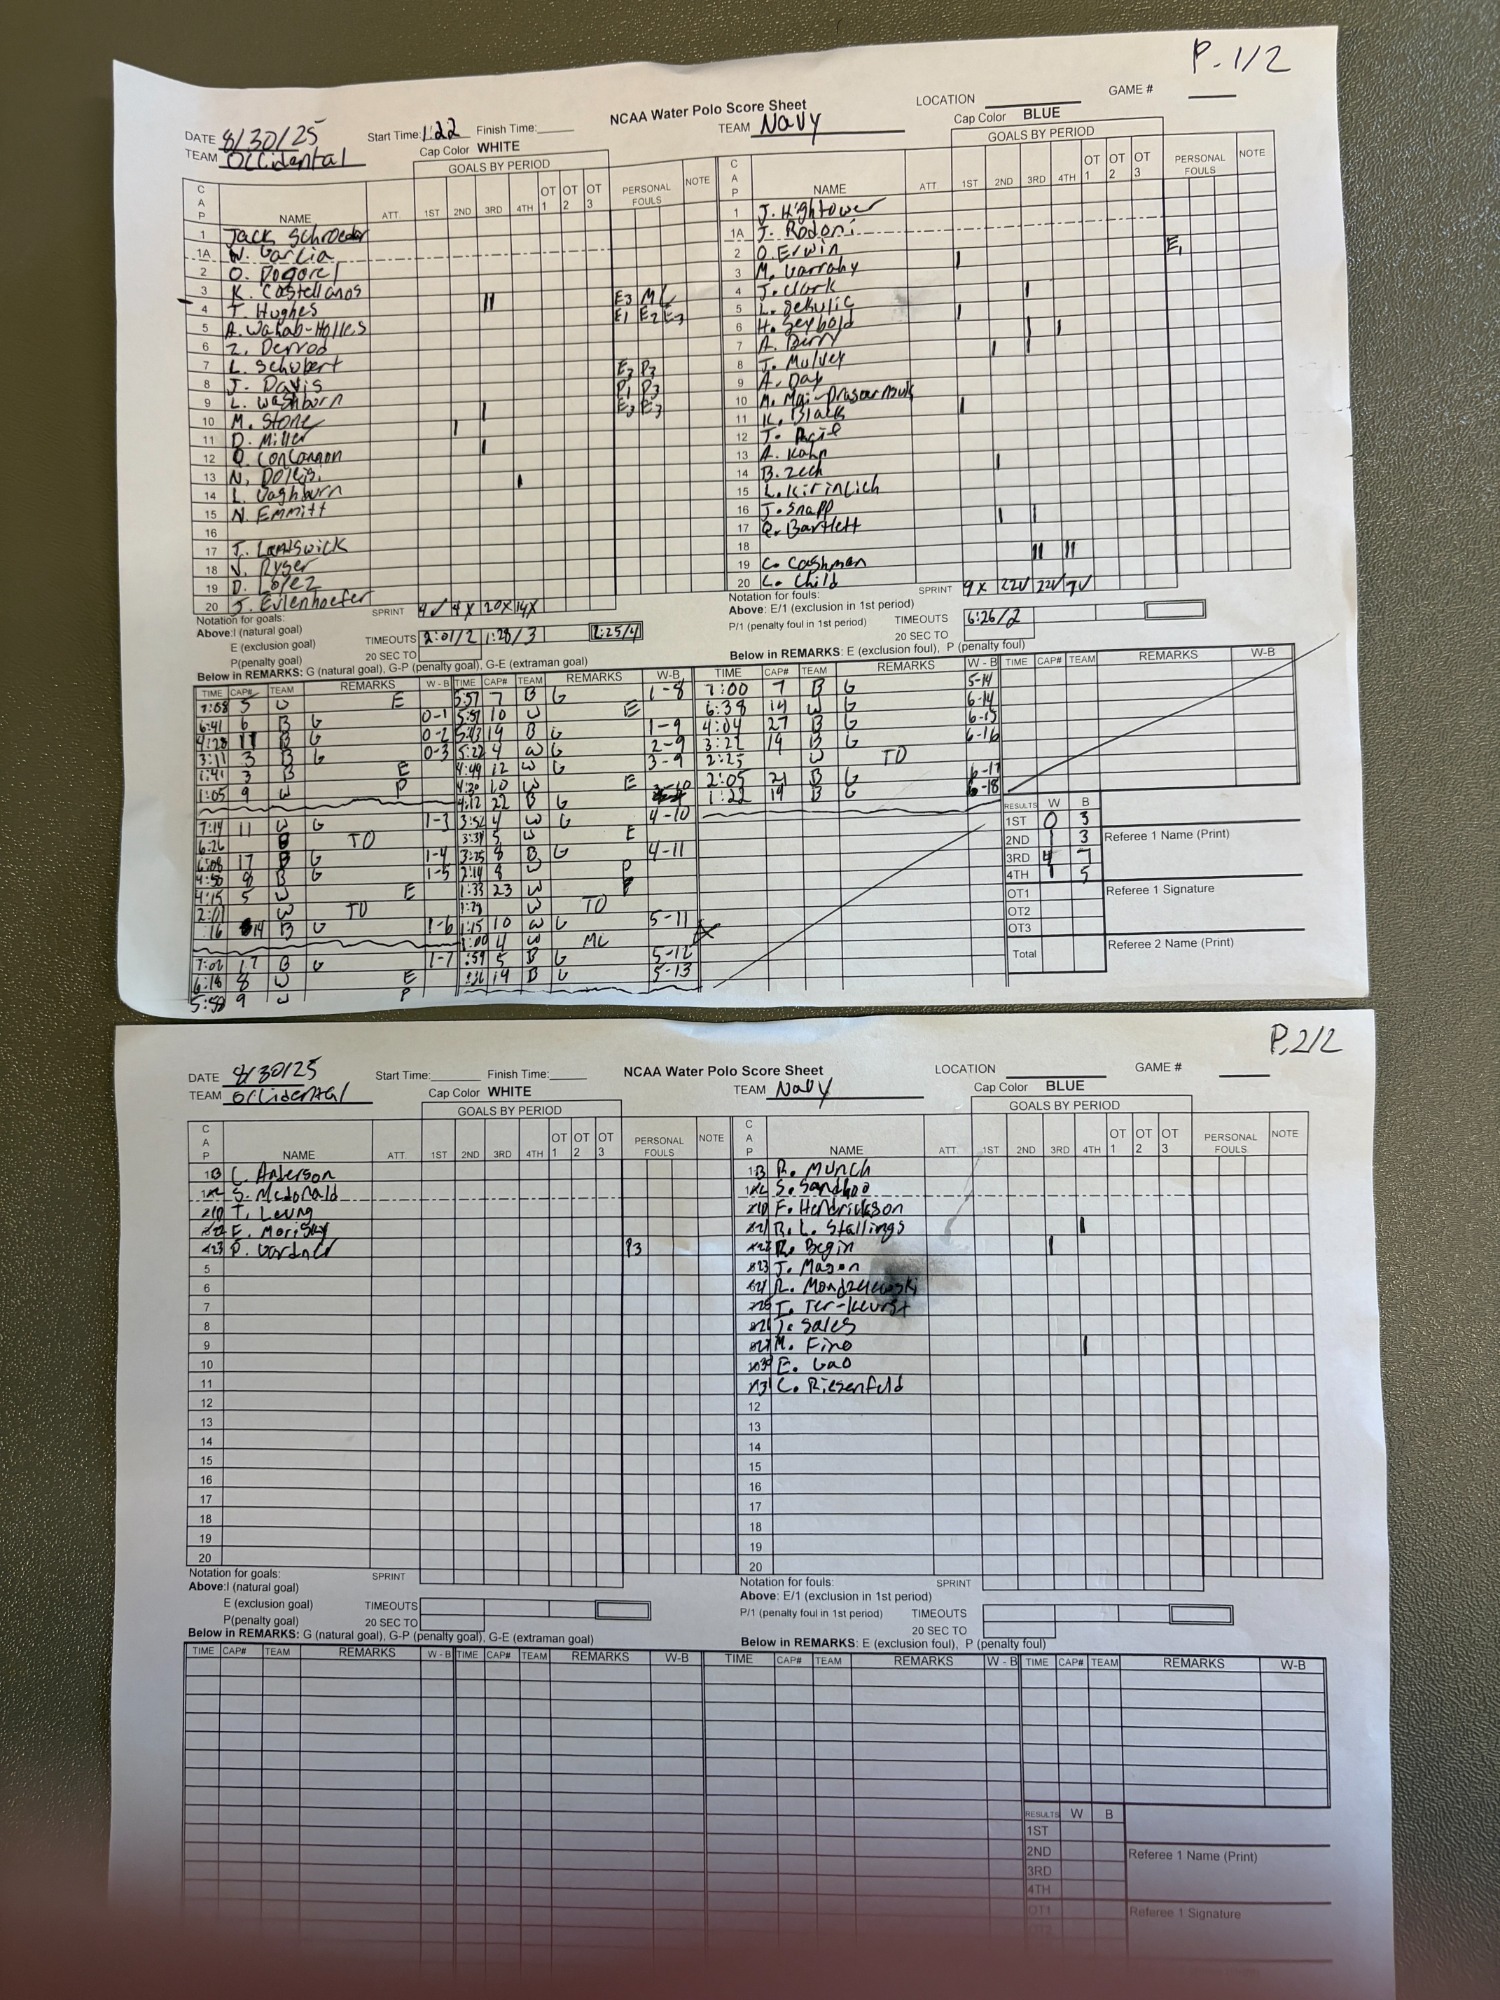 P. 1/2
NCAA Water Polo Score Sheet
LOCATION
GAME #
DATE 8/30/25
Start Time: 1:22 Finish Time:
TEAM Occidental
Cap Color WHITE
TEAM Navy
Cap Color BLUE
GOALS BY PERIOD
GOALS BY PERIOD
CAP NAME ATT. 1ST 2ND 3RD 4TH OT 1 OT 2 OT 3 PERSONAL FOULS NOTE
CAP NAME ATT 1ST 2ND 3RD 4TH OT 1 OT 2 OT 3 PERSONAL FOULS NOTE
1 Jack Schroeder
1A W. Garcia
2 O. Pogorel
3 K. Castellanos
4 T. Hughes II E3 MC
5 A. Wahab-Holles E1 E2 E3
6 Z. Derrod
7 L. Schubert
8 J. Davis E3 P3
9 L. Washburn P1 P3
10 M. Stone I E3 E3
11 D. Miller I
12 Q. Concannon I
13
14 L. Vaghburn I
15 N. Emmitt
16
17 J. Lantswick
18 V. Ryger
19 D. Lopez
20 J. Evlenhoefer
SPRINT 4✓ 4X 20X 14X
1 J. Hightower
1A J. Rodoni
2 O. Erwin
3 M. Garrahy I E1
4 J. Clark
5 L. Sekulic I
6 H. Seybold I
7 A. Berry I I
8 J. Mulvey I I
9 A. Day
10
11 K. Black I
12
13 A. Kahn
14 B. Zech I
15 L. Kirinlich
16 J. Snapp
17 Q. Bartlett I I
18
19 C. Cashman II II
20 C. Child
SPRINT 9X 22✓ 22✓ 7✓
Notation for goals:
Above: I (natural goal)
E (exclusion goal)
P(penalty goal)
TIMEOUTS 2:01/2 1:28/3 2:25/4
20 SEC TO
Notation for fouls:
Above: E/1 (exclusion in 1st period)
P/1 (penalty foul in 1st period)
TIMEOUTS 6:26/2
20 SEC TO
Below in REMARKS: G (natural goal), G-P (penalty goal), G-E (extraman goal)
Below in REMARKS: E (exclusion foul), P (penalty foul)
TIME CAP# TEAM REMARKS W - B
7:08 5 W E
6:41 6 B G 0-1
4:28 11 B G 0-2
3:11 3 B G 0-3
1:41 3 B E
1:05 9 W P
7:14 11 W G 1-3
6:26 B TO
6:08 17 B G 1-4
4:58 8 B G 1-5
4:15 5 W E
2:01 W TO
:16 14 B G 1-6
7:02 17 B G 1-7
6:18 8 W E
5:58 9 W P
TIME CAP# TEAM REMARKS W-B
5:57 7 B G 1-8
5:51 10 W E
5:43 19 B G 1-9
5:22 4 W G 2-9
4:49 12 W G 3-9
4:30 10 W E
4:12 22 B G
3:52 4 W G 4-10
3:39 5 W E
3:25 8 B G 4-11
2:19 8 W P
1:33 23 W P
1:28 W TO
1:15 10 W G 5-11
1:00 4 W MC
:59 5 B G 5-12
:36 19 B G 5-13
TIME CAP# TEAM REMARKS W - B
7:00 7 B G 5-14
6:38 14 W G 6-14
4:04 27 B G 6-15
3:22 19 B G 6-16
2:25 W TO
2:05 21 B G 6-17
1:22 19 B G 6-18
TIME CAP# TEAM REMARKS W-B
RESULTS W B
1ST 0 3
2ND 1 3
3RD 4 7
4TH 1 5
OT1
OT2
OT3
Total
Referee 1 Name (Print)
Referee 1 Signature
Referee 2 Name (Print)
P. 2/2
NCAA Water Polo Score Sheet
LOCATION
GAME #
DATE 8/30/25
Start Time: Finish Time:
TEAM Occidental
Cap Color WHITE
TEAM Navy
Cap Color BLUE
GOALS BY PERIOD
GOALS BY PERIOD
CAP NAME ATT. 1ST 2ND 3RD 4TH OT 1 OT 2 OT 3 PERSONAL FOULS NOTE
CAP NAME ATT. 1ST 2ND 3RD 4TH OT 1 OT 2 OT 3 PERSONAL FOULS NOTE
1B C. Anderson
S. McDonald
T. Leung
22 E. Morisky
23 P. Gardner P3
5
6
7
8
9
10
11
12
13
14
15
16
17
18
19
20
SPRINT
1B R. Munch
S. Sandhoo
F. Hendrickson
21 R. L. Stallings I
22 R. Begin I
23 J. Mason
R. Mondzelewski
25 I. Ter-Keurst
J. Sales
27 M. Fino I
E. Gao
C. Riesenfeld
12
13
14
15
16
17
18
19
20
SPRINT
Notation for goals:
Above: I (natural goal)
E (exclusion goal)
P(penalty goal)
TIMEOUTS
20 SEC TO
Notation for fouls:
Above: E/1 (exclusion in 1st period)
P/1 (penalty foul in 1st period)
TIMEOUTS
20 SEC TO
Below in REMARKS: G (natural goal), G-P (penalty goal), G-E (extraman goal)
Below in REMARKS: E (exclusion foul), P (penalty foul)
TIME CAP# TEAM REMARKS W - B TIME CAP# TEAM REMARKS W-B TIME CAP# TEAM REMARKS W - B TIME CAP# TEAM REMARKS W-B
RESULTS W B
1ST
2ND
3RD
4TH
OT1
Referee 1 Name (Print)
Referee 1 Signature